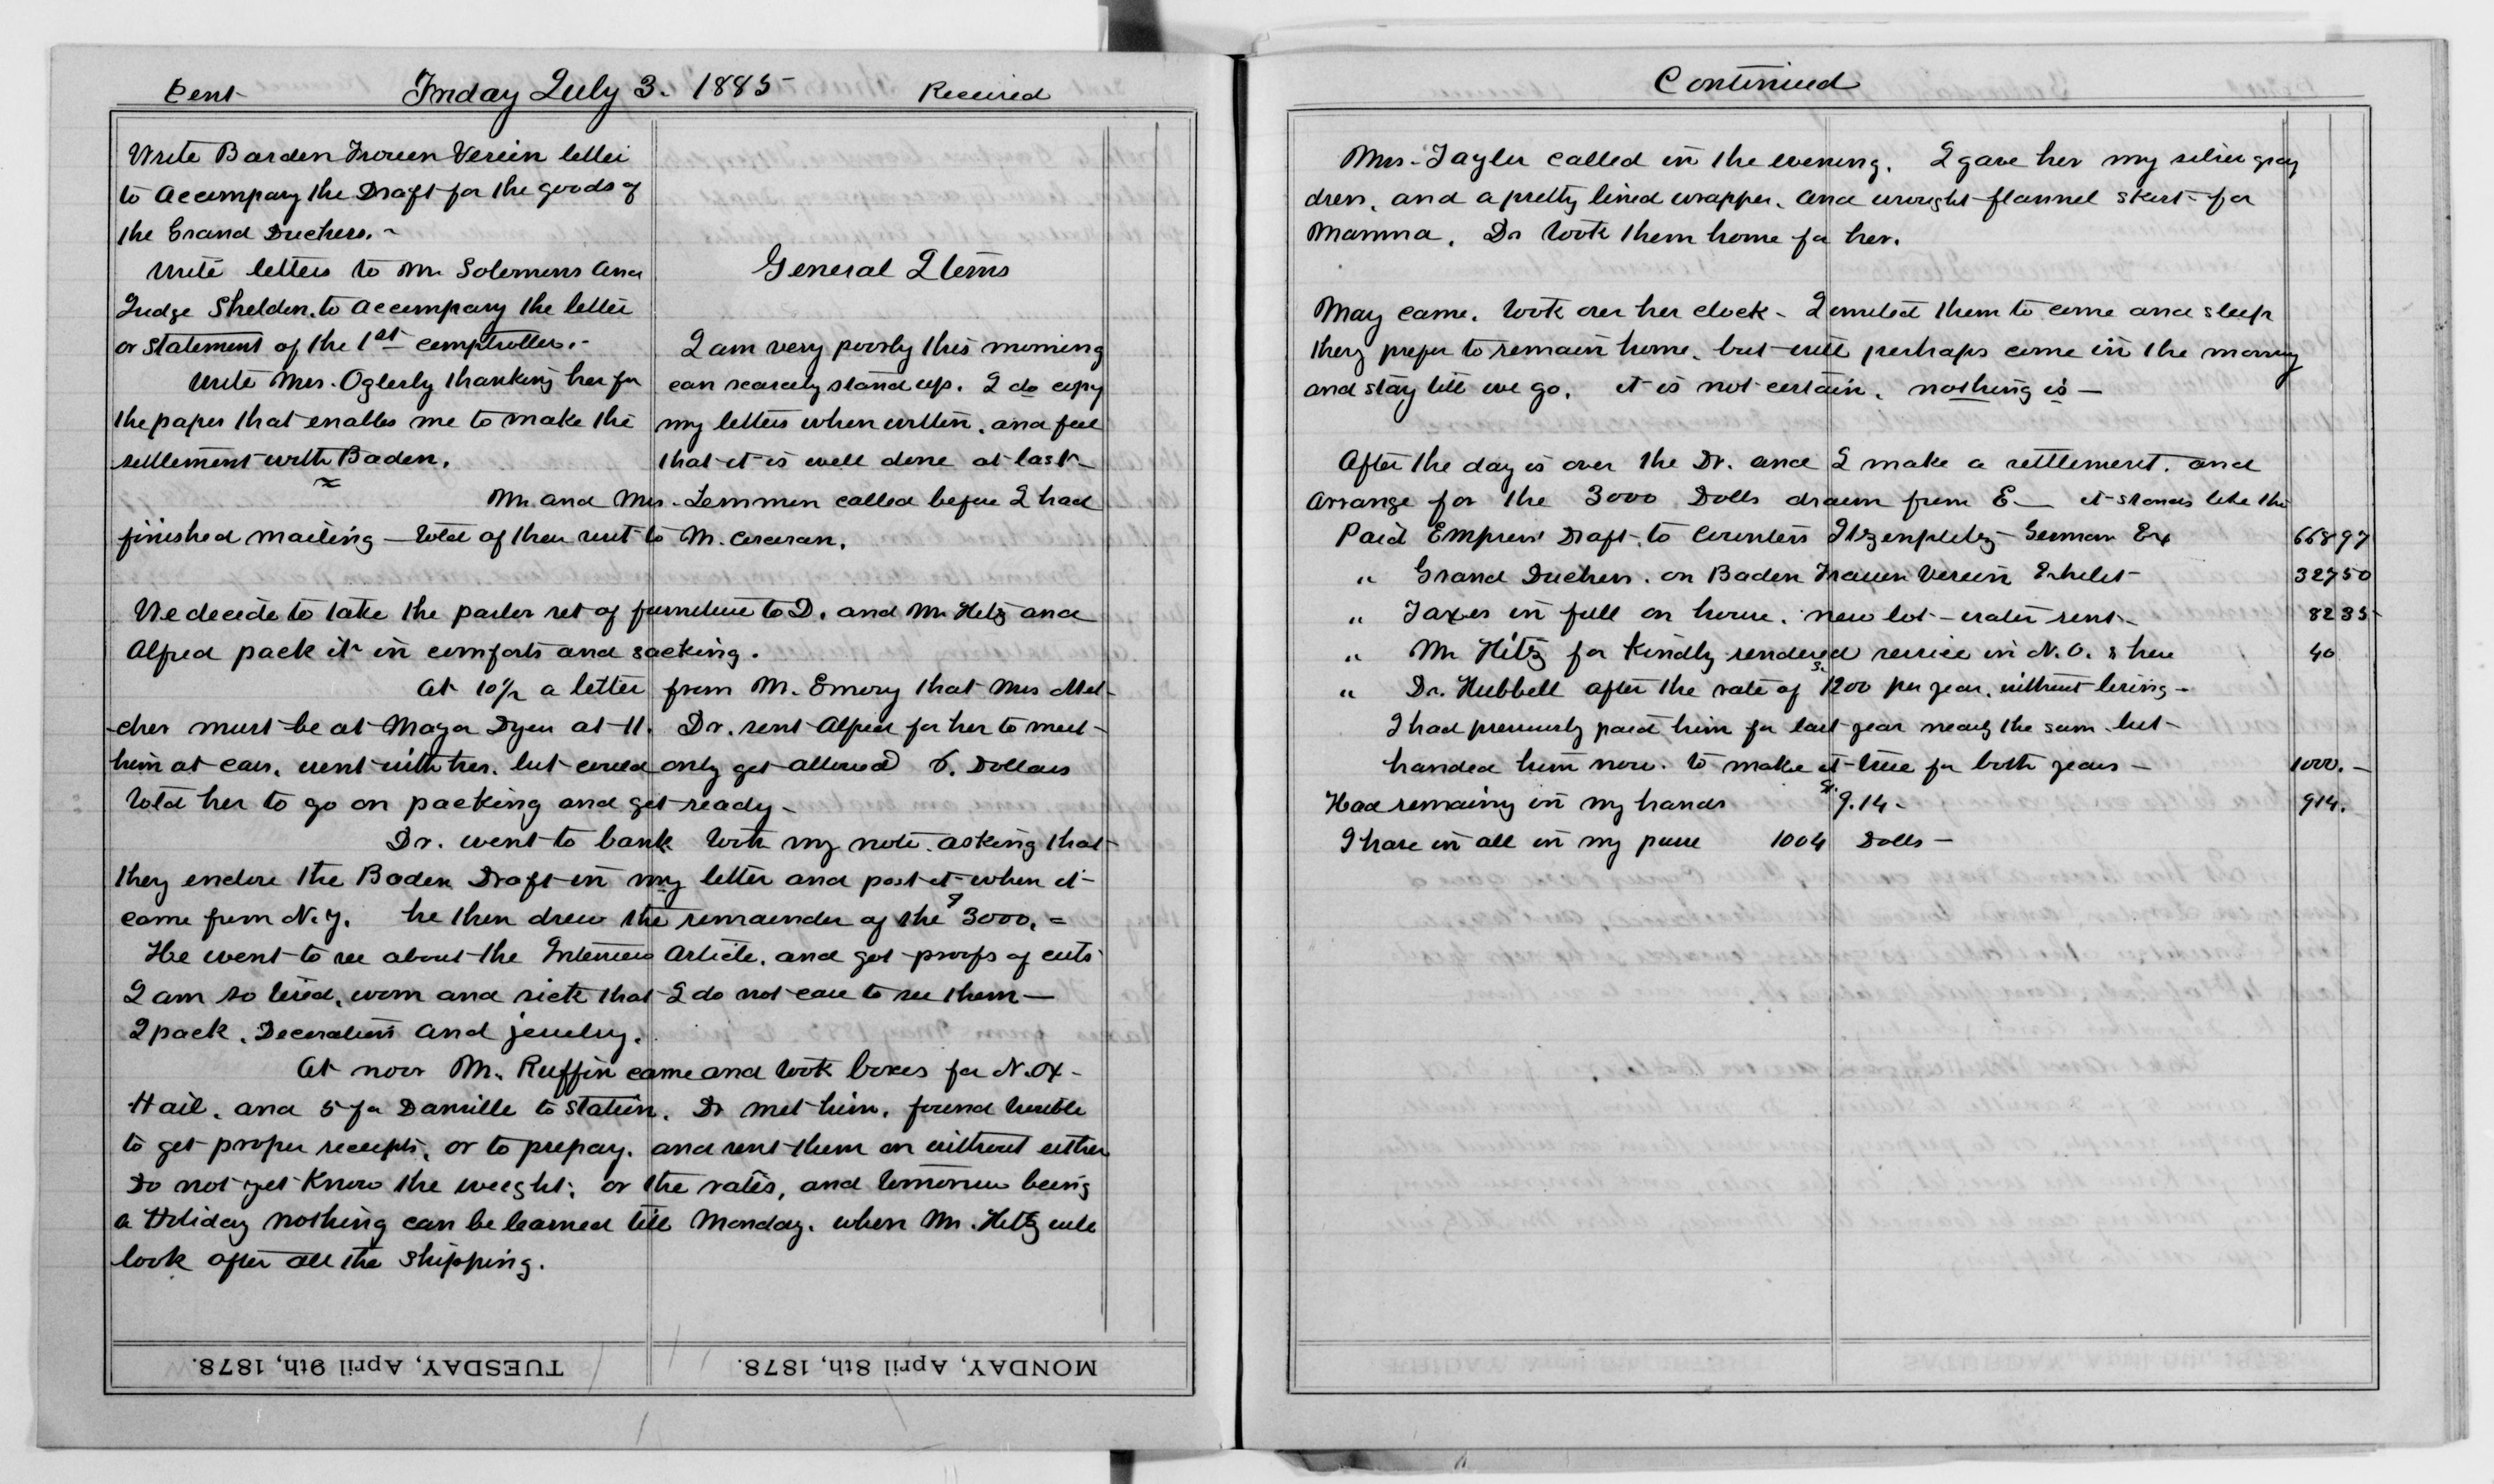 Sent
Friday July 3. 1885
Received
Write Barden Frouen Verein letter
to accompany the Draft for the goods of
the Grand Duchess. ~
Write letters to Mr Solomons and
Judge Sheldon. to accompany the letter
or statement of the 1st comptroller. -
Write Mrs. Oglesby thanking her for
the paper that enables me to make the
settlement with Baden.
General Items
I am very poorly this morning
can scarcely stand up. I do copy
my letters when written. and feel
that it is well done at last -
Mr. and Mrs. Lemmon called before I had
finished mailing - told of their visit to Mr. Corcoran.
We decide to take the parlor set of furniture to D. and Mr Hitz and
Alfred pack it in comforts and sacking.
At 10½ a letter from M. Emory that Mrs Mel-
-cher must be at Major Dyer at 11. Dr. sent Alfred for her to meet -
him at cars. went with her. but could only get allowed 6. Dollars
told her to go on packing and get ready -
Dr. went to bank with my note. asking that -
they endorse the Baden Draft in my letter and post it when it -
came from N.Y. he then drew the remainder of the $3000. =
He went to see about the Interview Article. and got proofs of cuts
I am so tired, worn and sick that I do not care to see them —
I pack. Decorations and jewelry.
At noon Mr. Ruffin came and took boxes for N. Ox -
Hail. and 5 for Dansville to station. Dr met him. found trouble
to get proper receipts, or to prepay. and sent them on without either
Do not yet know the weight; or the rates, and tomorrow being
a Holiday nothing can be learned till Monday. when Mr. Hitz will
look after all the shipping.
TUESDAY, April 9th, 1878.
MONDAY, April 8th, 1878.
Continued
Mrs. Tayler called in the evening. I gave her my silver gray
dress, and a pretty lined wrapper. and wrought flannel skirt - for
Mamma. Dr took them home for her.
May came. took over her clock - I invited them to come and sleep
they prefer to remain home. but will perhaps come in the morning
and stay till we go. it is not certain. nothing is —
After the day is over the Dr. and I make a settlement. and
arrange for the 3000 Dolls drawn from E — it stands like this
Paid Empress Draft. to Countess Itzenplitz - German Ex 668 97
" Grand Duchess. on Baden Frauen Verein Exhibit - 327 50
" Taxes in full on house. new lot - water rent - 82 35
" Mr Hitz for kindly rendered service in N.O. & here 40
" Dr. Hubbell after the rate of $1200 per year. without living -
I had previously paid him for last year nearly the sum. but -
handed him now. to make it true for both years - 1000. -
Had remaining in my hands $9.14 - 914.
I have in all in my purse 1004 Dolls —